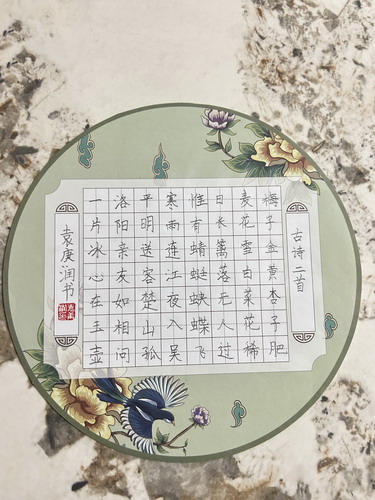 古诗二首
梅子金黄杏子肥
麦花雪白菜花稀
日长篱落无人过
惟有蜻蜓蛱蝶飞
寒雨连江夜入吴
平明送客楚山孤
洛阳亲友如相问
一片冰心在玉壶
袁庚润书